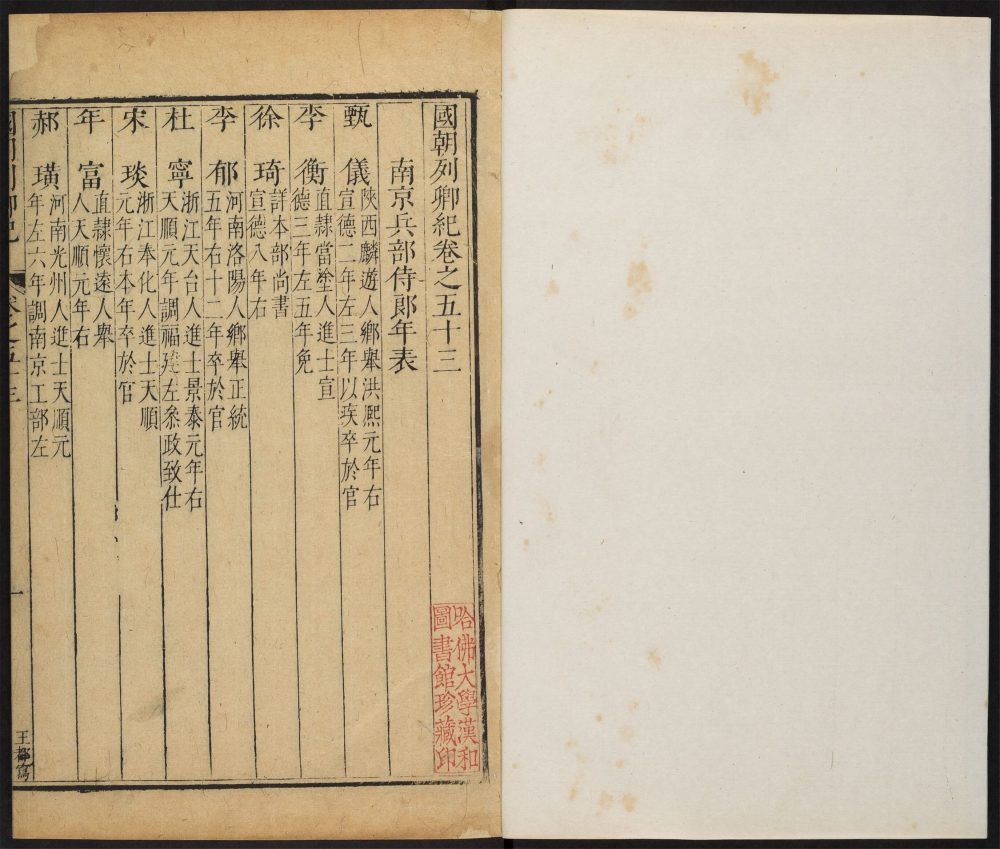 國朝列卿紀卷之五十三
南京兵部侍郎年表
甄　儀
陝西麟遊人鄉舉洪熙元年右
宣德二年左三年以疾卒於官
李　衡
直隸當塗人進士宣
德三年左五年免
徐　琦
詳本部尚書
宣德八年右
李　郁
河南洛陽人鄉舉正統
五年右十二年卒於官
杜　寧
浙江天台人進士景泰元年右
天順元年調福建左叅政致仕
宋　琰
浙江奉化人進士天順
元年右本年卒於官
年　富
直隸懷遠人舉
人天順元年右
郝　璜
河南光州人進士天順元
年左六年調南京工部左
國朝列卿紀
卷之五十三
一
王都寫
哈佛大學漢和
圖書館珍藏印